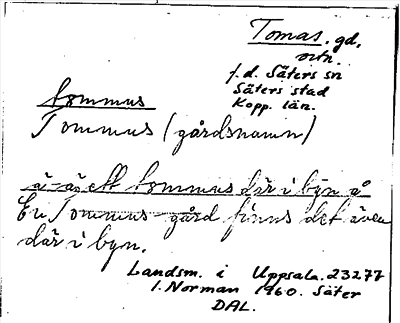 Tomas. gd.
ortn.
f.d. Säters sn
Säters stad
Kopp. län.
tommus
Tommus (gårdsnamn)
ä-äs ett tommus där i byn å
En Tommus-gård finns det även
där i byn.
Landsm. i Uppsala. 23277
I. Norman 1960. Säter
DAL.